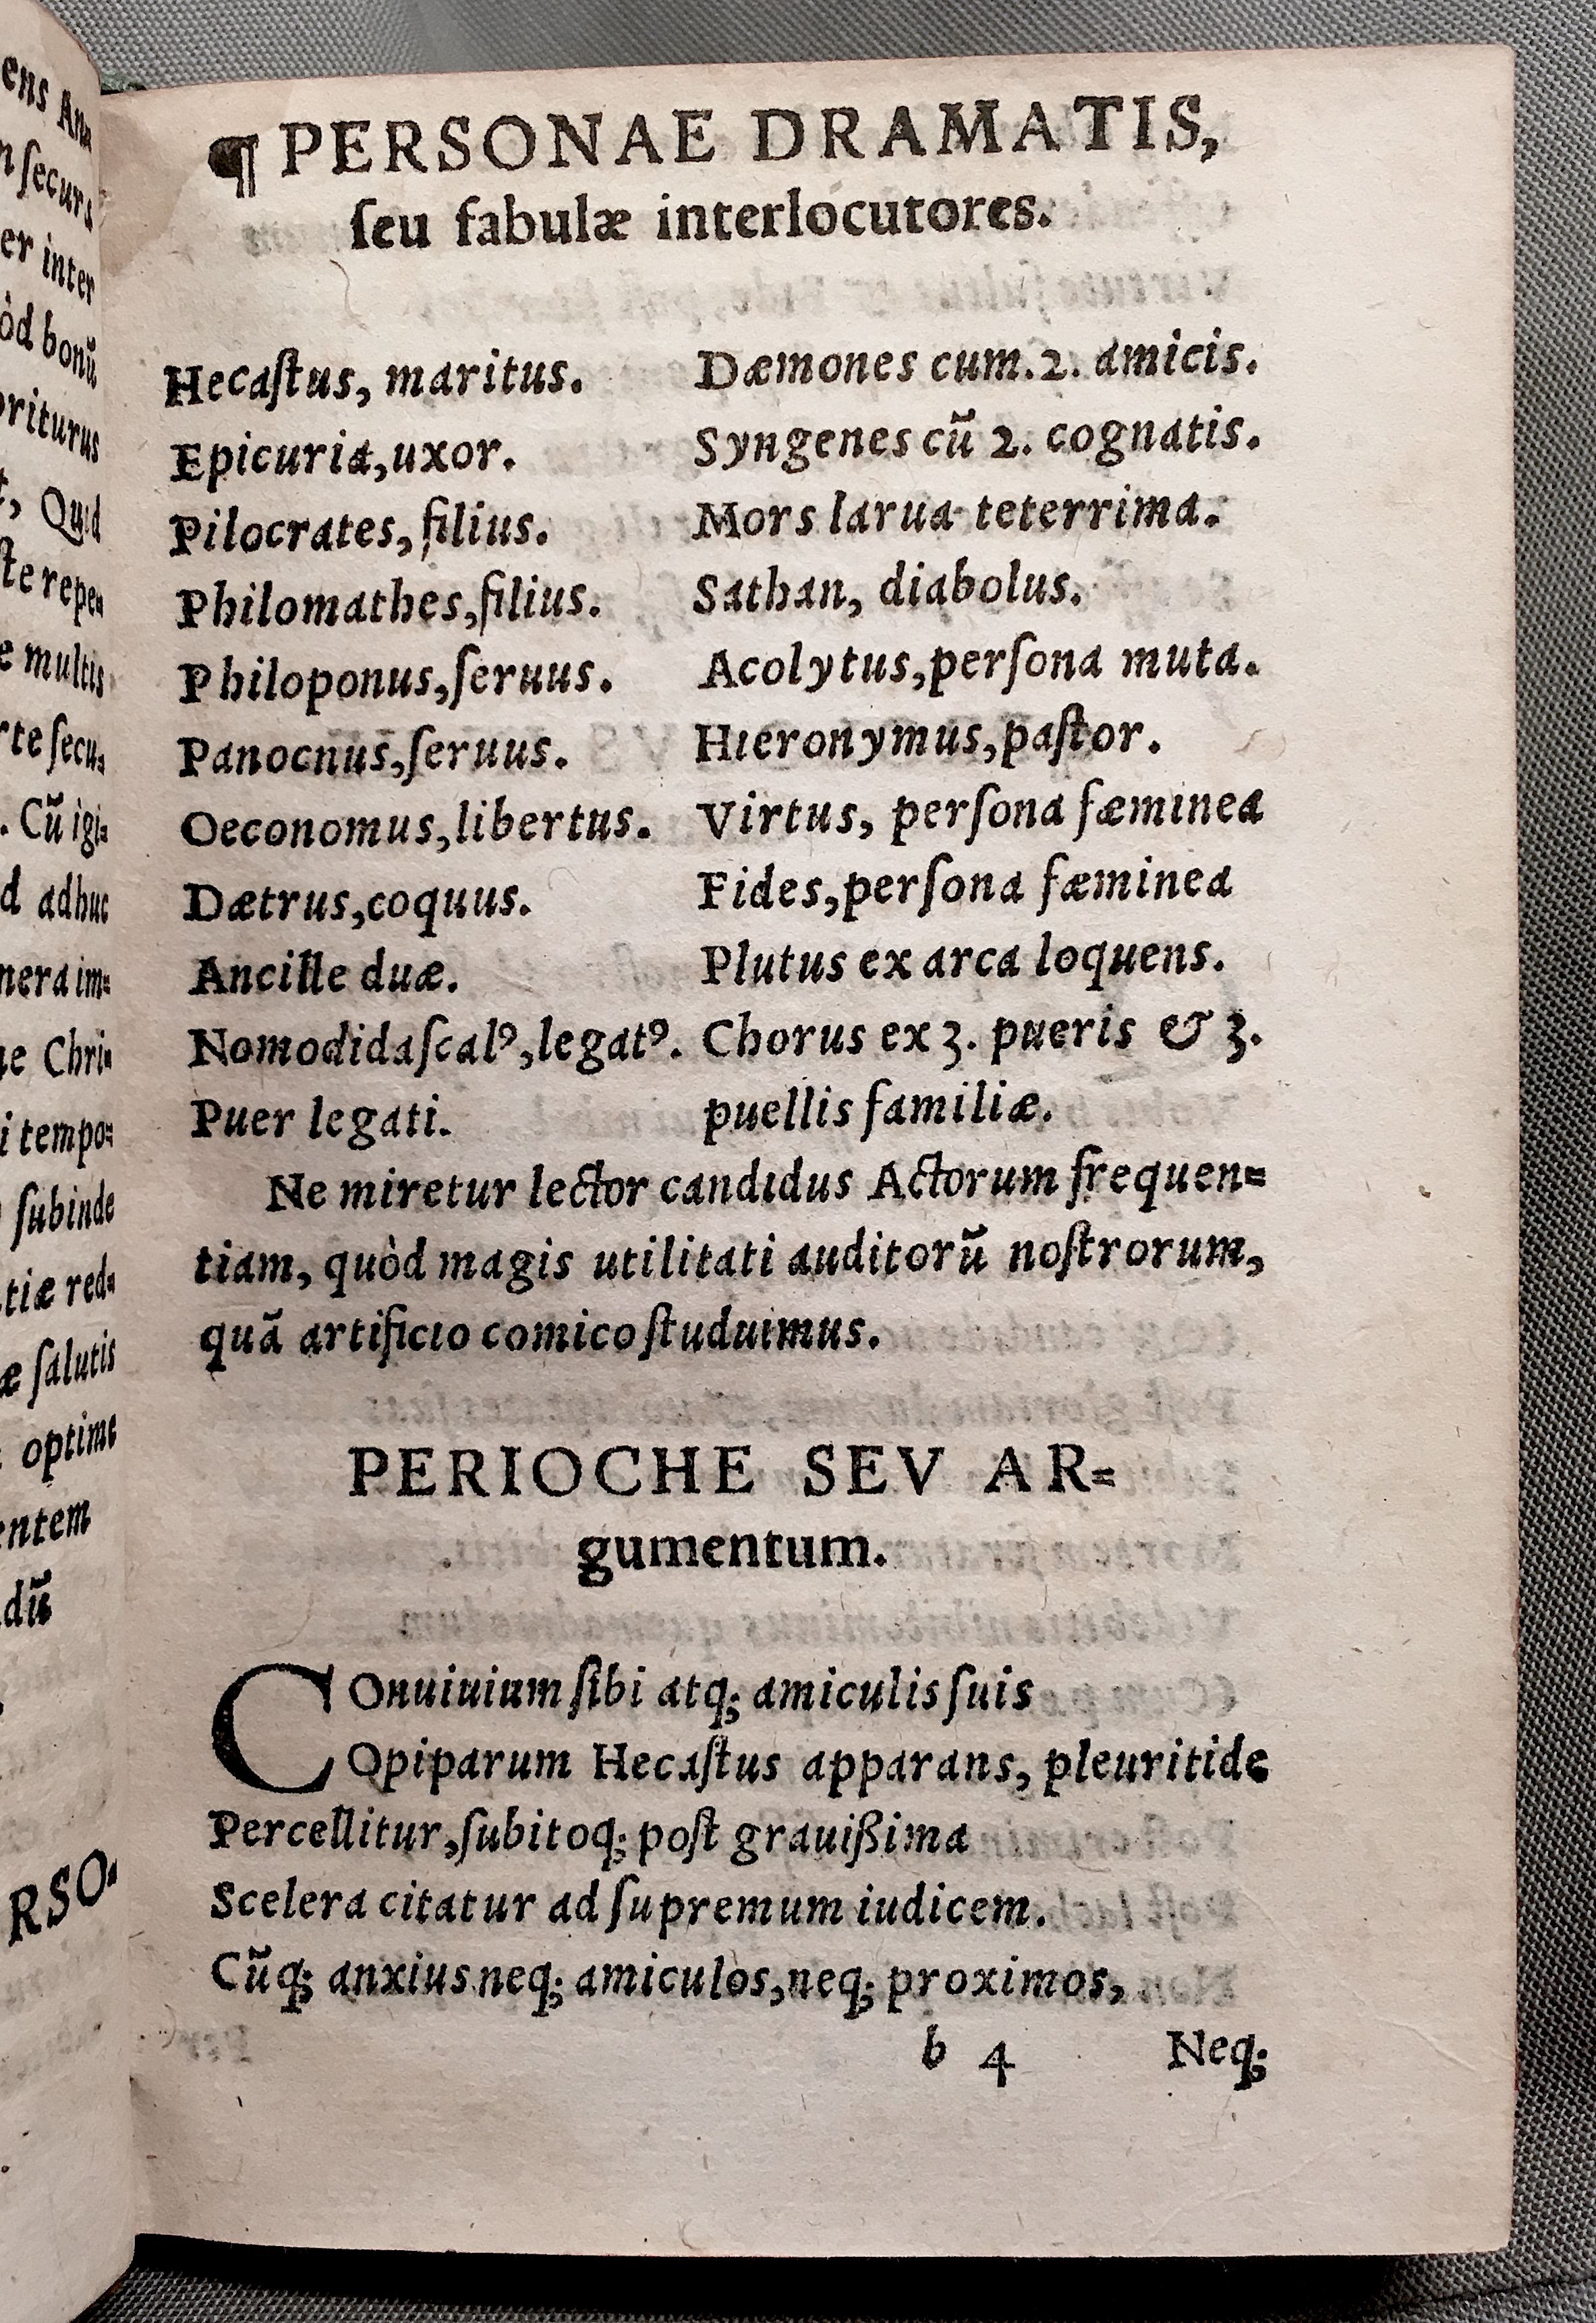 ens Ana
n ſecurs
er inter
òd bonũ
oriturus
t, Quid
ſte repen
e multis
rte ſecu⸗
. Cũ igi⸗
d adhuc
nera im⸗
ae Chri⸗
i tempo⸗
ſubinde
tiæ red⸗
æ ſalutis
optime
entem
dũ
RSO⸗
¶ PERSONAE DRAMATIS,
ſeu fabulæ interlocutores.
Hecaſtus, maritus.
Epicuria, uxor.
Pilocrates, filius.
Philomathes, filius.
Philoponus, ſeruus.
Panocnus, ſeruus.
Oeconomus, libertus.
Dætrus, coquus.
Ancille duæ.
Nomodidaſcalꝰ, legatꝰ.
Puer legati.
Dæmones cum. 2. amicis.
Syngenes cũ 2. cognatis.
Mors larua teterrima.
Sathan, diabolus.
Acolytus, perſona muta.
Hieronymus, paſtor.
Virtus, perſona fæminea
Fides, perſona fæminea
Plutus ex arca loquens.
Chorus ex 3. pueris & 3.
puellis familiæ.
Ne miretur lector candidus Actorum frequen⸗
tiam, quòd magis utilitati auditorũ noſtrorum,
quã artificio comico ſtuduimus.
PERIOCHE SEV AR⸗
gumentum.
COnuiuium ſibi atq; amiculis ſuis
Opiparum Hecaſtus apparans, pleuritide
Percellitur, ſubitoq; poſt grauißima
Scelera citatur ad ſupremum iudicem.
Cũq; anxius neq; amiculos, neq; proximos,
b 4 Neq;